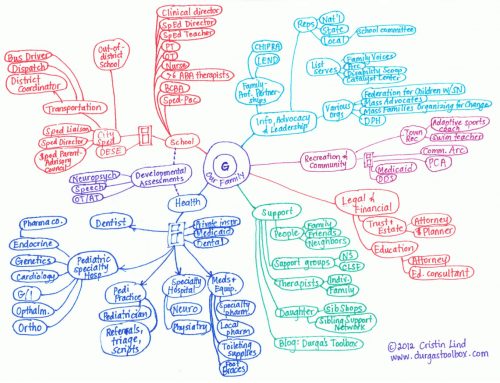 Clinical director
SpEd Director
SpEd Teacher
PT
OT
Nurse
26 ABA therapists
BCBA
Sped-Pac
School
Out-of-
district
School
City
Sped
DESE
Bus Driver
Dispatch
District
Coordinator
Transportation
Sped Liaison
Sped Director
Sped Parent
Advisory
Council
Developmental
Assessments
Neuropsych
Speech
OT/AT
G
Our Family
Info, Advocacy
& Leadership
CHIPRA
LEND
Family
Prof. Partner-
ships
Reps
Nat'l
State
Local
School committee
List
serves
Family Voices
Arc
Disability Scoop
Catalyst Center
Various
Orgs
Federation for Children w/ SN
Mass Advocates
Mass Families Organizing for Change
DPH
Recreation &
Community
Town
Rec
Adaptive sports
coach
Swim teacher
Comm. Arc
PCA
Medicaid
DDS
Legal &
Financial
Trust &
Estate
Attorney
$ Planner
Education
Attorney
Ed. consultant
Support
People
Family
Friends
Neighbors
Support groups
NS
CLSF
Therapists
Indiv.
Family
Daughter
SibShops
Sibling Support
Network
Blog: Durga's Toolbox
Health
Dentist
Private insur.
Medicaid
Dental
Pediatric
specialty
Hosp
Pharma co.
Endocrine
Genetics
Cardiology
G/I
Opthalm.
Ortho
Pedi
Practice
Pediatrician
Referrals,
triage,
scripts
Specialty
Hospital
Neuro
Physiatry
Meds +
Equip.
Specialty
pharm.
Local
pharm
Toileting
supplies
Foot
Braces
©2012 Cristin Lind
www.durgastoolbox.com